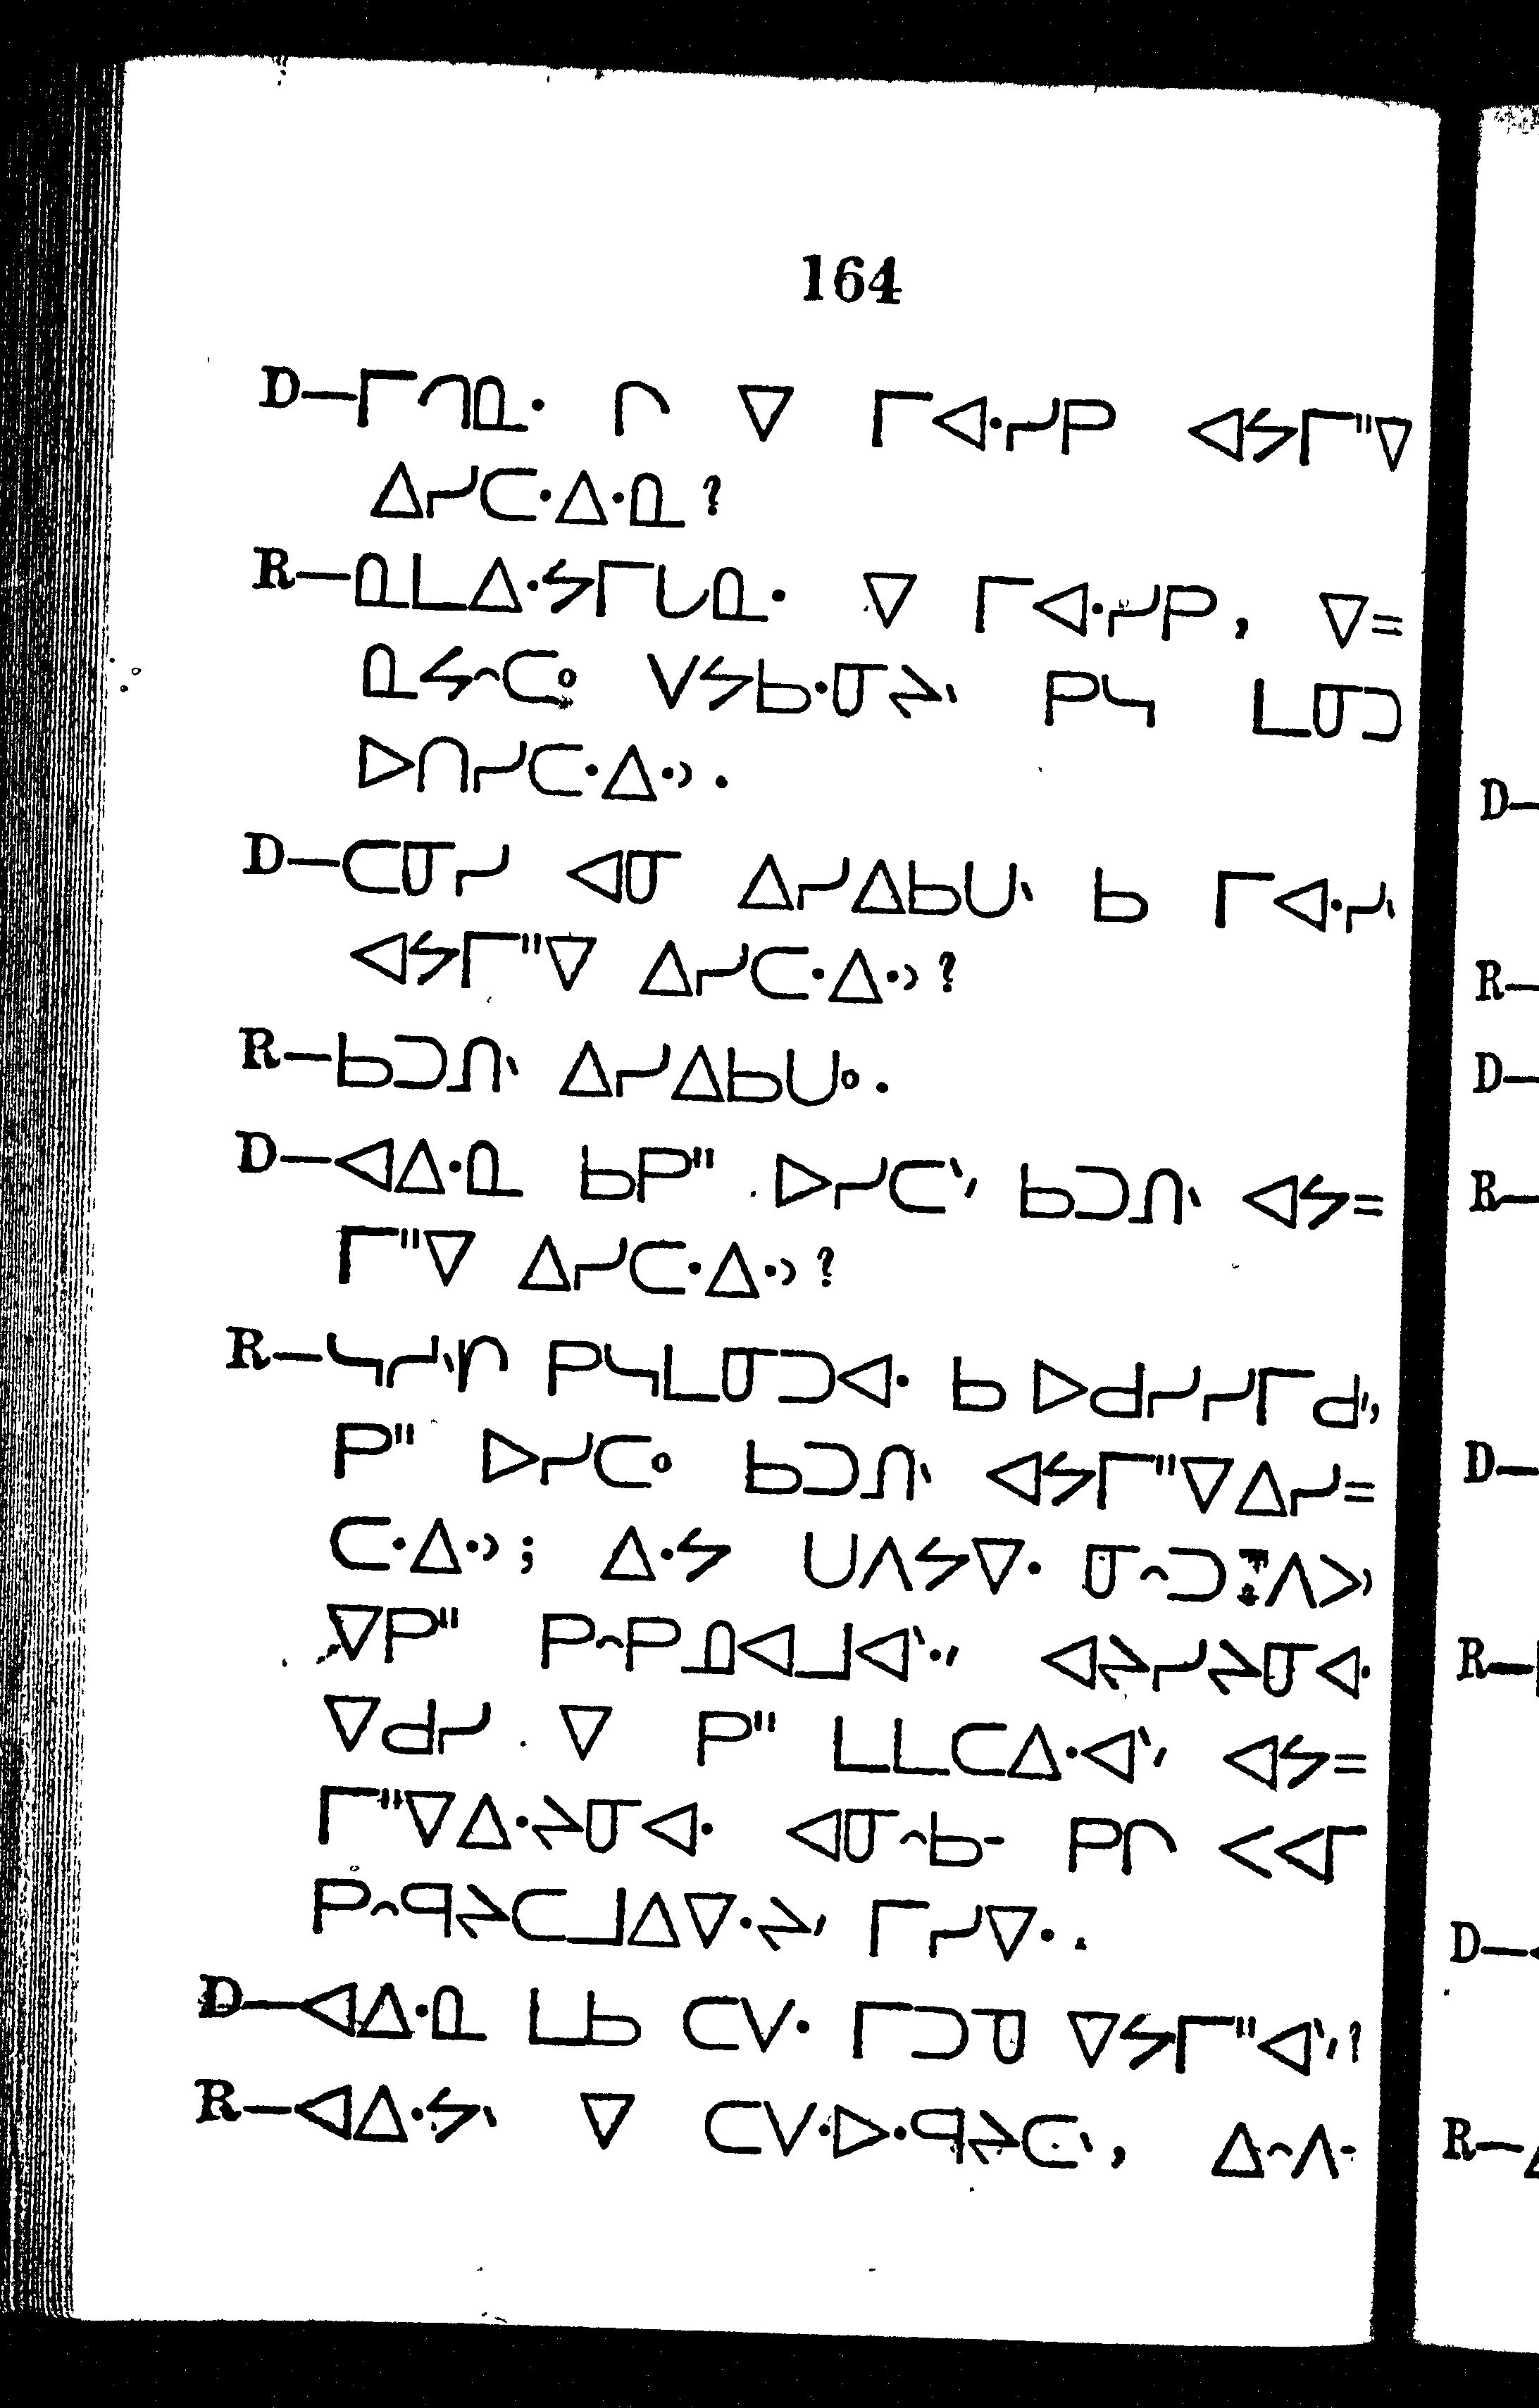 164
D—ᒥᒉᓇᐧ ᒋ ᐁ ᒥᐊᐧᓯᑭ ᐊᔭᒥᐦᐁ
ᐃᓯᑕᐧᐃᐧᓇ?
R—ᓇᒪᐃᐧᔭᒥᒐᓇᐧ ᐁ ᒥᐊᐧᓯᑭ, ᐁ=
ᓇᔭᐢᑕᐤ ᐯᔭᑲᐧᓂᔨᐠ ᑭᓴ ᒪᓂᑐ
ᐅᑎᓯᑕᐧᐃᐧᐣ.
D—ᑕᓂᓯ ᐊᓂ ᐃᓯᐃᑲᑌᐠ ᑲ ᒥᐊᐧᓯᐠ
ᐊᔭᒥᐦᐁ ᐃᓯᑕᐧᐃᐧᐣ?
R—ᑲᑐᓕᐠ ᐃᓯᐃᑲᑌᐤ.
D—ᐊᐃᐧᓇ ᑲᑭᐦ ᐅᓯᑕᐟ ᑲᑐᓕᐠ ᐊᔭ=
ᒥᐦᐁ ᐃᓯᑕᐧᐃᐧᐣ?
R—ᓴᓯᐠᒋ ᑭᓴᒪᓂᑐᐊᐧ ᑲ ᐅᑯᓯᓯᒥᑯᐟ,
ᑭᐦ ᐅᓯᑕᐤ ᑲᑐᓕᐠ ᐊᔭᒥᐦᐁᐃᓯ=
ᑕᐧᐃᐧᐣ; ᐃᐧᔭ ᑌᐱᔭᐁᐧ ᓂᐢᑐ ᐱᐳᐣ
ᐁᑭᐦ ᑭᐢᑭᓄᐊᒧᐊᐟ ᐊᔨᓯᔨᓂᐊᐧ
ᐁᑯᓯ ᐁ ᑭᐦ ᒪᒪᑕᐃᐧᐊᐟ ᐊᔭ=
ᒥᐦᐁᐃᐧᔨᓂᐊᐧ ᐊᓂᐢᑲᐨ ᑭᒋ ᐸᐊᒥ
ᑭᐢᑫᔨᑕᒧᐃᐁᐧᔨᐟ ᒥᓯᐁᐧ.
D—ᐊᐃᐧᓇ ᒪᑲ ᑕᐯᐧ ᒥᑐᓀ ᐁᔭᒥᐦᐊᐟ?
R—ᐊᐃᐧᔭᐠ ᐁ ᑕᐯᐧᐅᐧᑫᔨᑕᐠ, ᐃᐢᐱᐨ